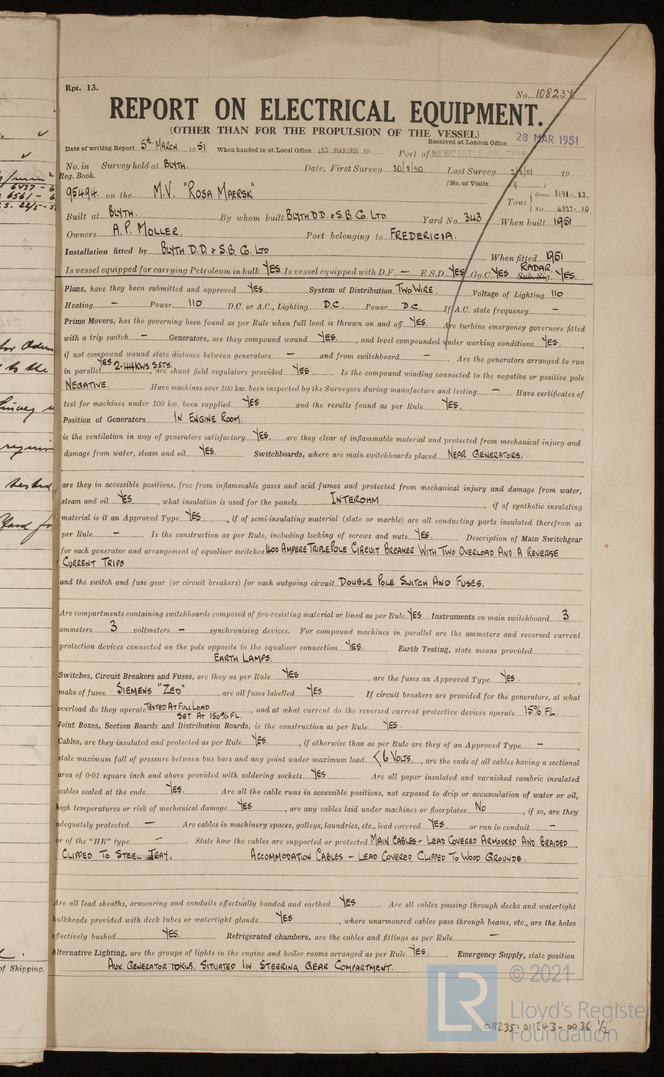 Rpt. 13.
No. 108234
REPORT ON ELECTRICAL EQUIPMENT.
(OTHER THAN FOR THE PROPULSION OF THE VESSEL)
Received at London Office 28 MAR 1951
Date of writing Report 5th MARCH 1951 When handed in at Local Office MAR 1951 19 Port of NEWCASTLE-ON-TYNE
No. in Survey held at BLYTH. Date, First Survey 30/8/50 Last Survey 19
Reg. Book. (No. of Visits
95494 on the M.V. "ROSA MAERSK" Tons Gross 8198.83 Net
Built at BLYTH. By whom built BLYTH D.D. & S.B. CO. LTD. Yard No. 343 When built 1951
Owners A.P. MOLLER. Port belonging to FREDERICIA.
Installation fitted by BLYTH D.D. & S.B. CO. LTD When fitted 1951
Is vessel equipped for carrying Petroleum in bulk YES Is vessel equipped with D.F. — E.S.D. YES Gy.C. YES RADAR Sub.Sig. YES.
Plans, have they been submitted and approved YES. System of Distribution TWO WIRE. Voltage of Lighting 110
Heating — Power 110 D.C. or A.C., Lighting D.C. Power D.C. If A.C. state frequency —
Prime Movers, has the governing been found as per Rule when full load is thrown on and off YES. Are turbine emergency governors fitted
with a trip switch — Generators, are they compound wound YES. , and level compounded under working conditions YES. ,
if not compound wound state distance between generators — and from switchboard — Are the generators arranged to run
in parallel YES 2-144KWS SETS. , are shunt field regulators provided YES. Is the compound winding connected to the negative or positive pole
NEGATIVE. Have machines over 100 kw. been inspected by the Surveyors during manufacture and testing — Have certificates of
test for machines under 100 kw. been supplied YES and the results found as per Rule YES.
Position of Generators IN ENGINE ROOM.
is the ventilation in way of generators satisfactory YES. are they clear of inflammable material and protected from mechanical injury and
damage from water, steam and oil YES. Switchboards, where are main switchboards placed NEAR GENERATORS.
are they in accessible positions, free from inflammable gases and acid fumes and protected from mechanical injury and damage from water,
steam and oil YES , what insulation is used for the panels INTEROHM , if of synthetic insulating
material is it an Approved Type YES , if of semi-insulating material (slate or marble) are all conducting parts insulated therefrom as
per Rule — Is the construction as per Rule, including locking of screws and nuts YES. Description of Main Switchgear
for each generator and arrangement of equaliser switches 1400 AMPERE TRIPLE POLE CIRCUIT BREAKER WITH TWO OVERLOAD AND A REVERSE
CURRENT TRIPS
and the switch and fuse gear (or circuit breakers) for each outgoing circuit DOUBLE POLE SWITCH AND FUSES.
Are compartments containing switchboards composed of fire-resisting material or lined as per Rule YES Instruments on main switchboard 3
ammeters 3 voltmeters — synchronising devices. For compound machines in parallel are the ammeters and reversed current
protection devices connected on the pole opposite to the equaliser connection YES. Earth Testing, state means provided
EARTH LAMPS.
Switches, Circuit Breakers and Fuses, are they as per Rule YES , are the fuses an Approved Type YES .
make of fuses SIEMENS "ZED" , are all fuses labelled YES If circuit breakers are provided for the generators, at what
overload do they operate TESTED AT FULL LOAD SET AT 150% FL. , and at what current do the reversed current protective devices operate 15% FL
Joint Boxes, Section Boards and Distribution Boards, is the construction as per Rule YES.
Cables, are they insulated and protected as per Rule YES. , if otherwise than as per Rule are they of an Approved Type —
state maximum fall of pressure between bus bars and any point under maximum load < 6 VOLTS , are the ends of all cables having a sectional
area of 0·01 square inch and above provided with soldering sockets YES Are all paper insulated and varnished cambric insulated
cables sealed at the ends YES. Are all the cable runs in accessible positions, not exposed to drip or accumulation of water or oil,
high temperatures or risk of mechanical damage YES , are any cables laid under machines or floorplates NO , if so, are they
adequately protected — Are cables in machinery spaces, galleys, laundries, etc., lead covered YES or run in conduit —
or of the "HR" type — State how the cables are supported or protected MAIN CABLES - LEAD COVERED ARMOURED AND BRAIDED
CLIPPED TO STEEL TRAY. ACCOMMODATION CABLES - LEAD COVERED CLIPPED TO WOOD GROUNDS.
Are all lead sheaths, armouring and conduits effectually bonded and earthed YES. Are all cables passing through decks and watertight
bulkheads provided with deck tubes or watertight glands YES , where unarmoured cables pass through beams, etc., are the holes
effectively bushed YES. Refrigerated chambers, are the cables and fittings as per Rule —
Alternative Lighting, are the groups of lights in the engine and boiler rooms arranged as per Rule YES. Emergency Supply, state position
AUX. GENERATOR 10KWS. SITUATED IN STEERING GEAR COMPARTMENT.
of Shipping.
© 2021
LR Lloyd's Register
Foundation
011235-011243-0036 1/2